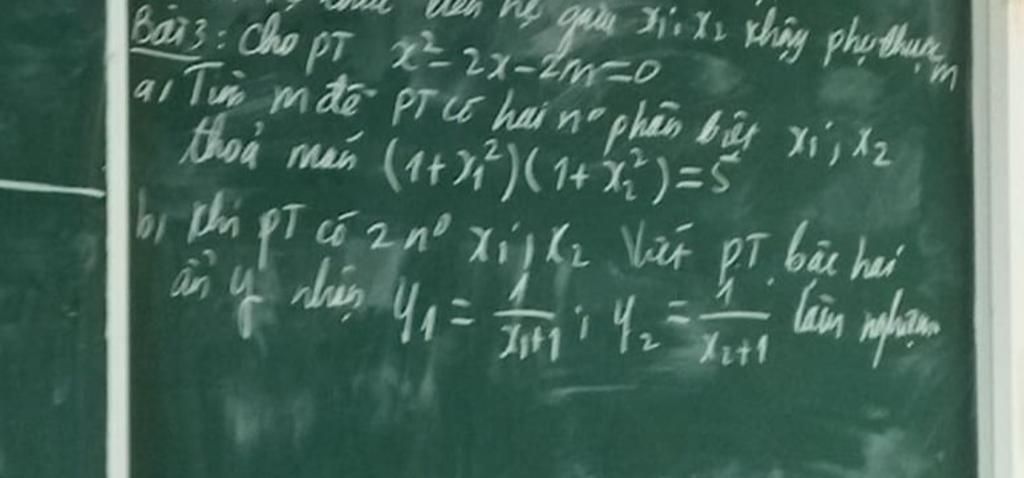 thức liên hệ giữa x₁; x₂ không phụ thuộc m
Bài 3: Cho PT x² - 2x - 2m = 0
a, Tìm m để PT có hai nº phân biệt x₁; x₂
thoả mãn (1 + x₁²)(1 + x₂²) = 5
b, Khi PT có 2 nº x₁; x₂ Viết PT bậc hai
ẩn y nhận y₁ = 1/(x₁+1); y₂ = 1/(x₂+1) làm nghiệm